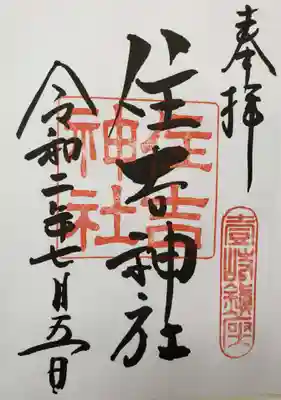 奉拝
壱岐鎮座
住吉神社
住吉神社
令和二年七月五日